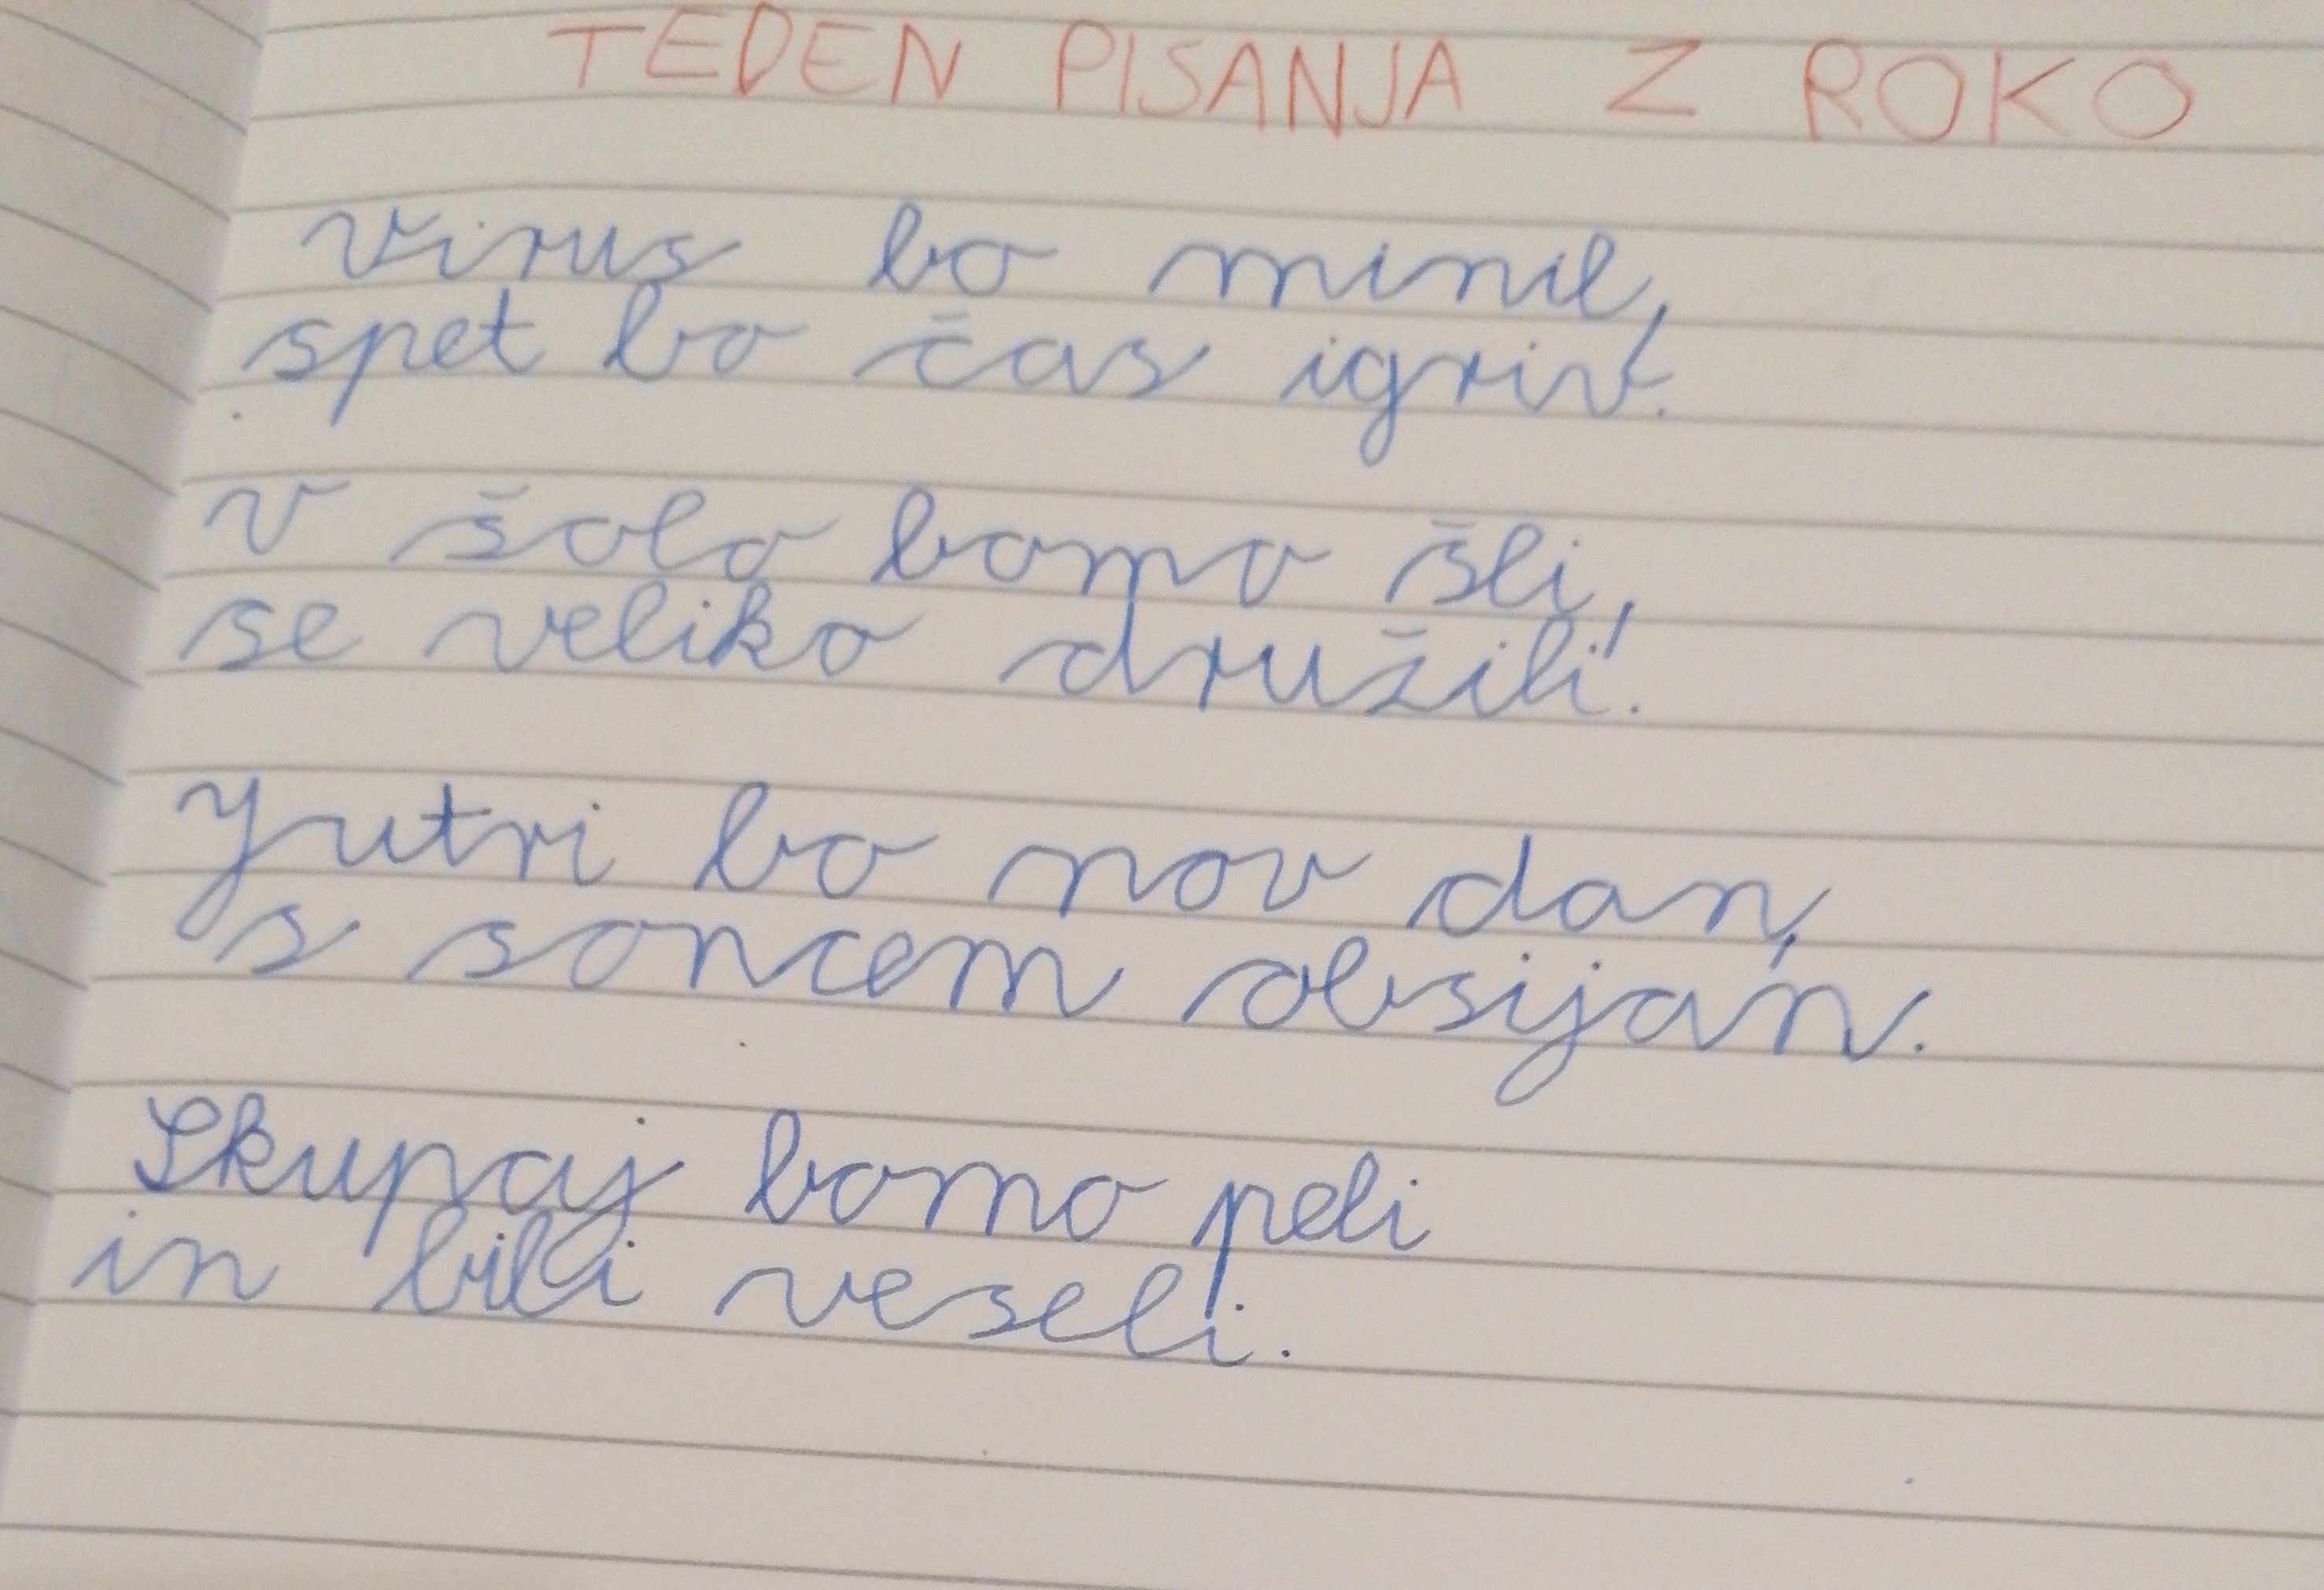 TEDEN PISANJA Z ROKO
Virus bo minil,
spet bo čas igriv.
V šolo bomo šli,
se veliko družili.
Jutri bo nov dan,
s soncem obsijan.
Skupaj bomo peli
in bili veseli.